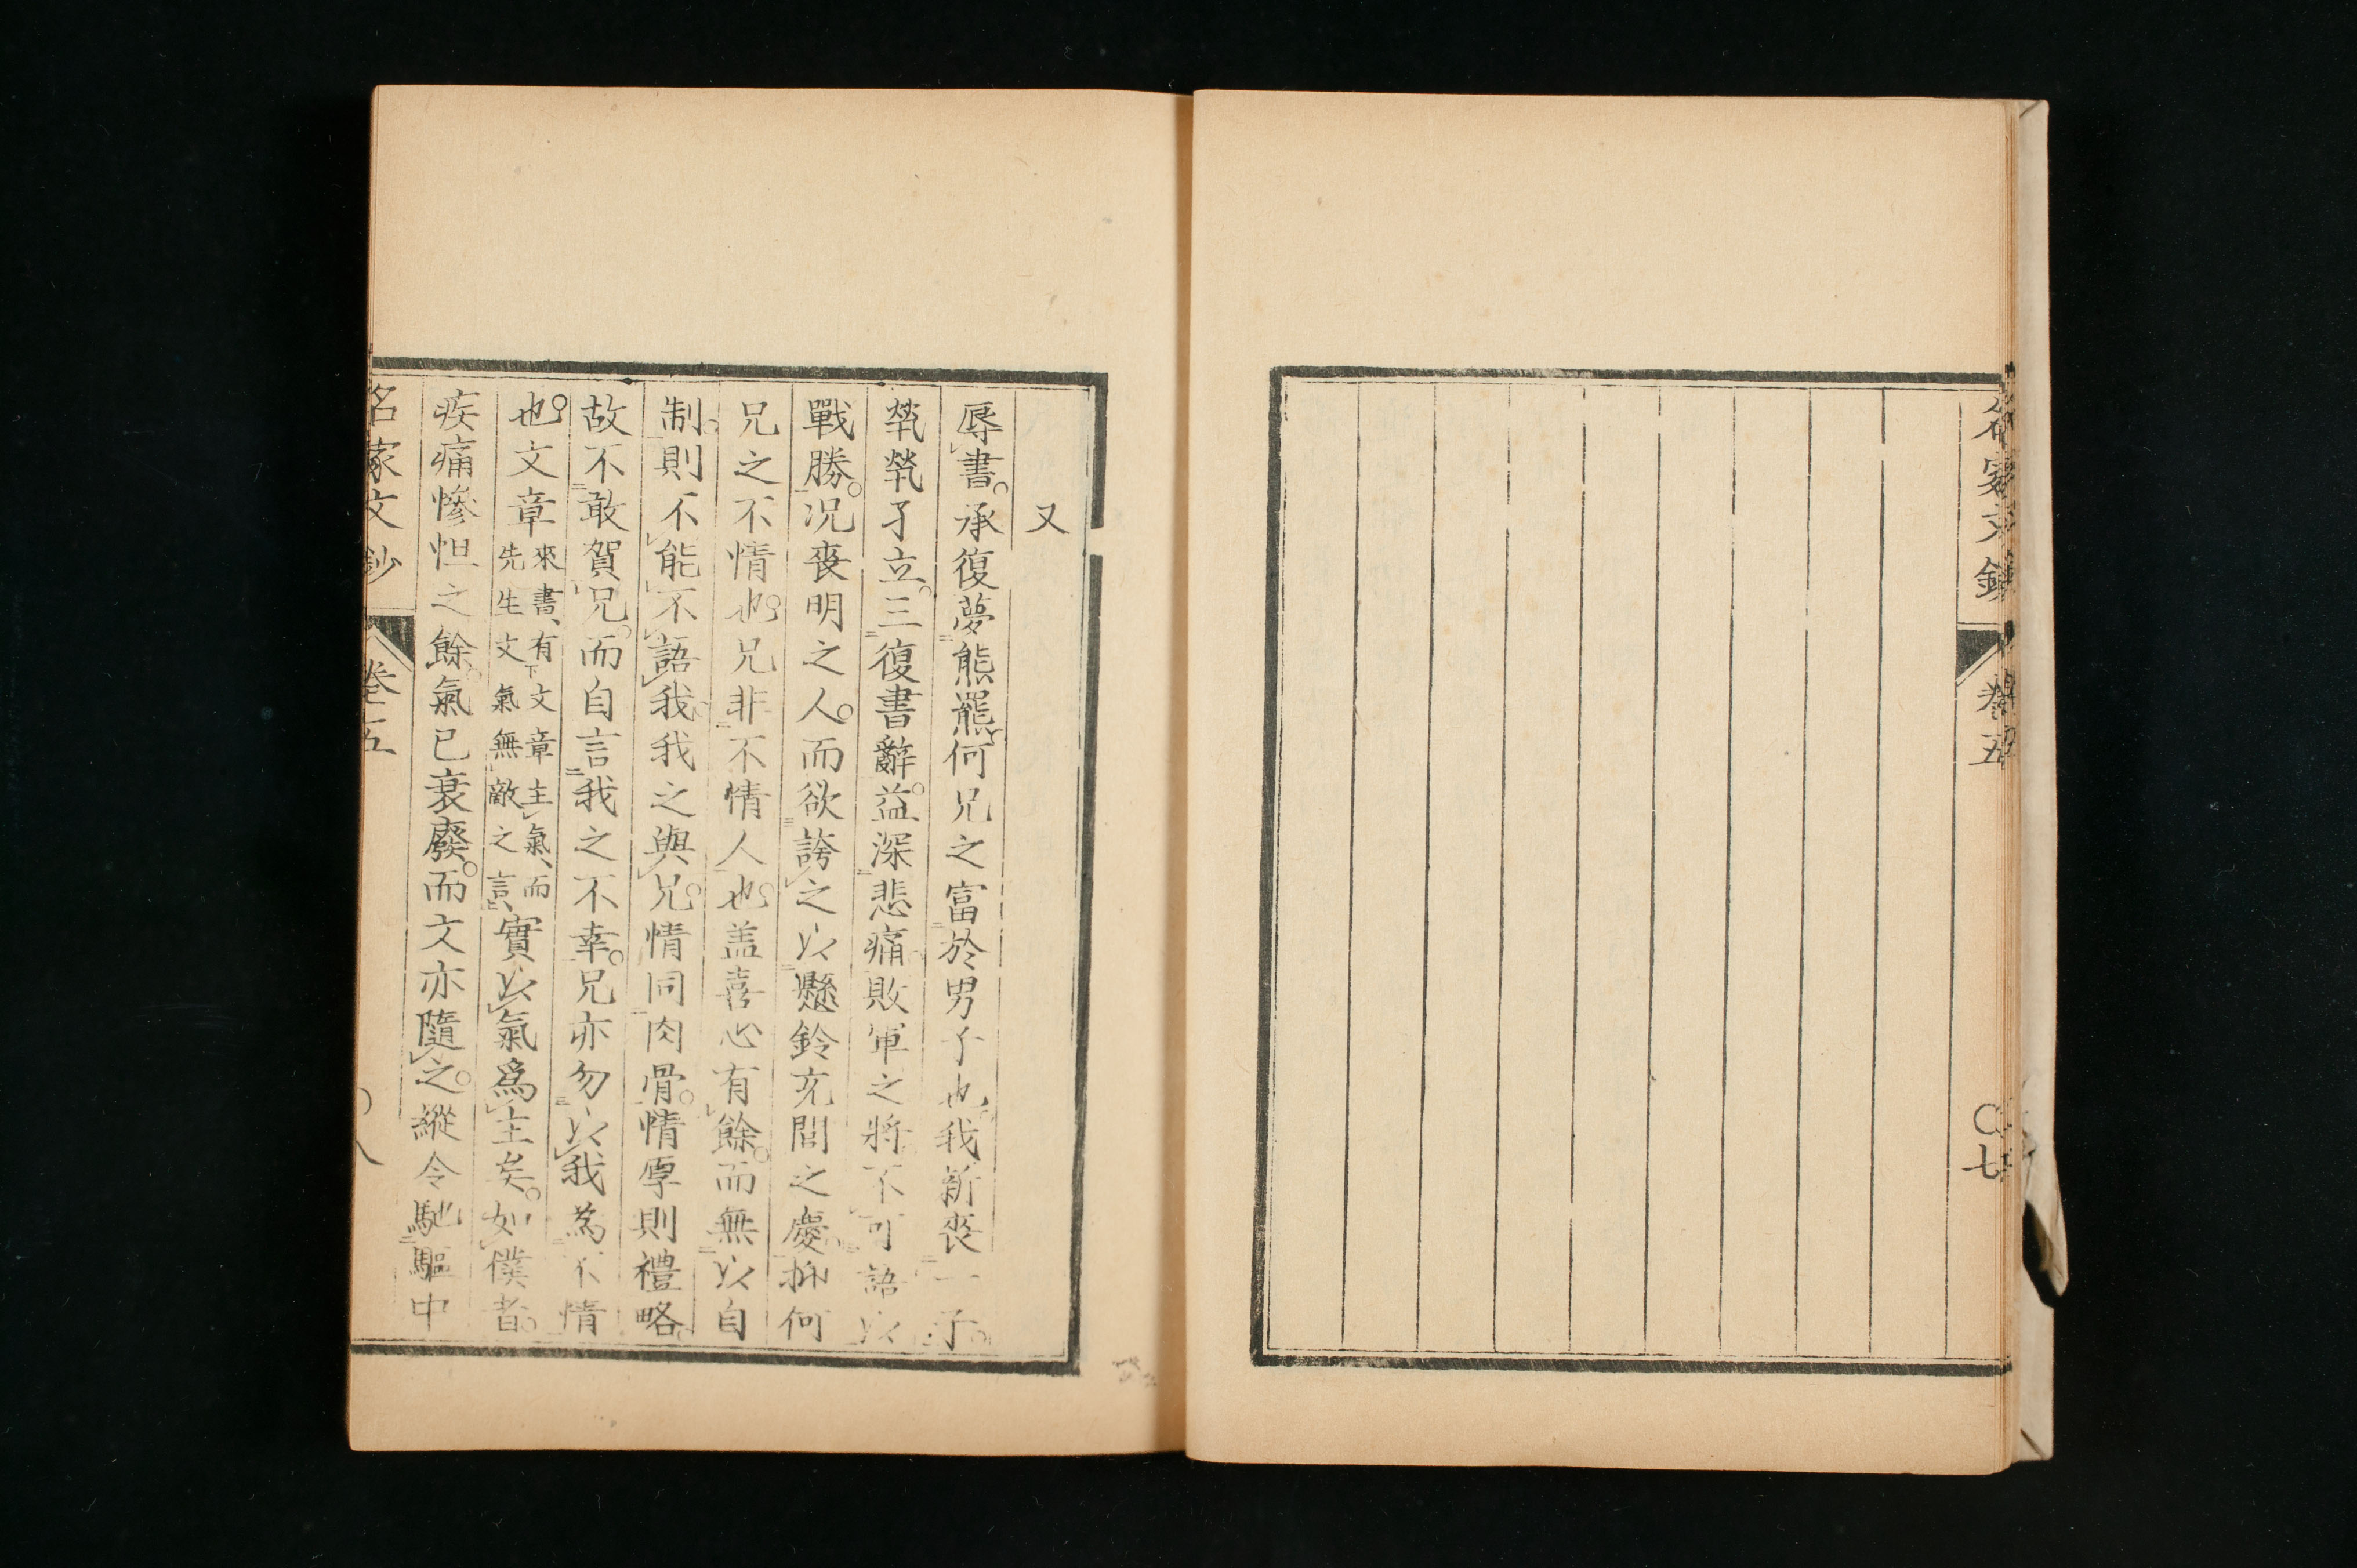 名家文鈔
卷五
〇七
又
辱書承復夢熊羆何兄之富於男子也我新喪一子
煢煢孑立三復書辭益深悲痛敗軍之將不可語以
戰勝况喪明之人而欲誇之以懸鈴充閭之慶抑何
兄之不情也兄非不情人也盖喜心有餘而無以自
制則不能不語我我之與兄情同肉骨情厚則禮略
故不敢賀兄而自言我之不幸兄亦勿以我為不情
也文章來書有文章主氣而先生文氣無敵之言實以氣爲主矣如僕者
疾痛慘怛之餘氣已衰廢而文亦隨之縱令馳驅中
名家文鈔
卷五
〇八